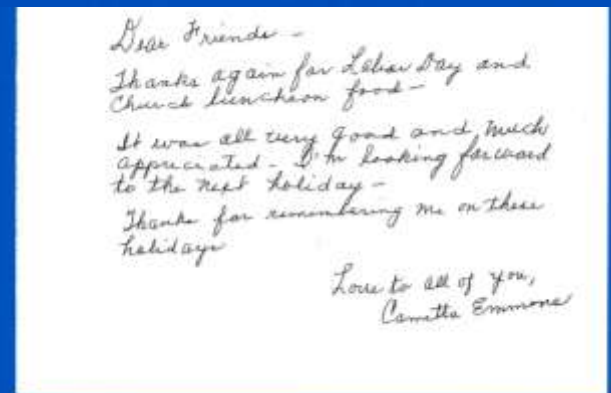 Dear Friends -
Thanks again for Labor Day and
Church luncheon food -
It was all very good and much
appreciated - I'm looking forward
to the next holiday -
Thanks for remembering me on these
holidays
Love to all of you,
Emmons